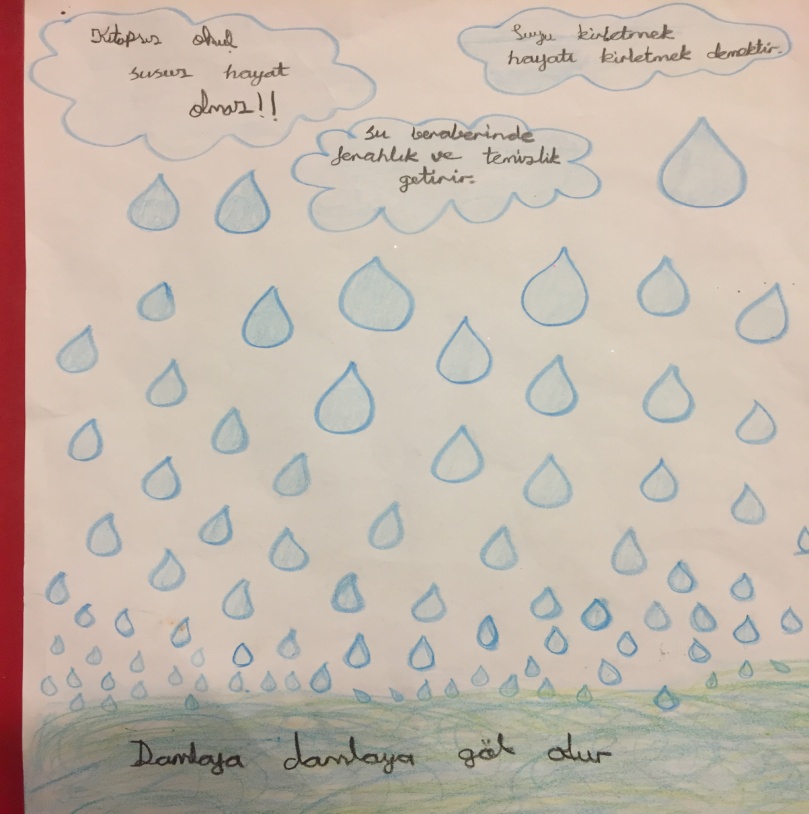 Kitapsız okul
susuz hayat
olmaz!!
Suyu kirletmek
hayatı kirletmek demektir.
Su beraberinde
ferahlık ve temizlik
getirir.
Damlaya damlaya göl olur